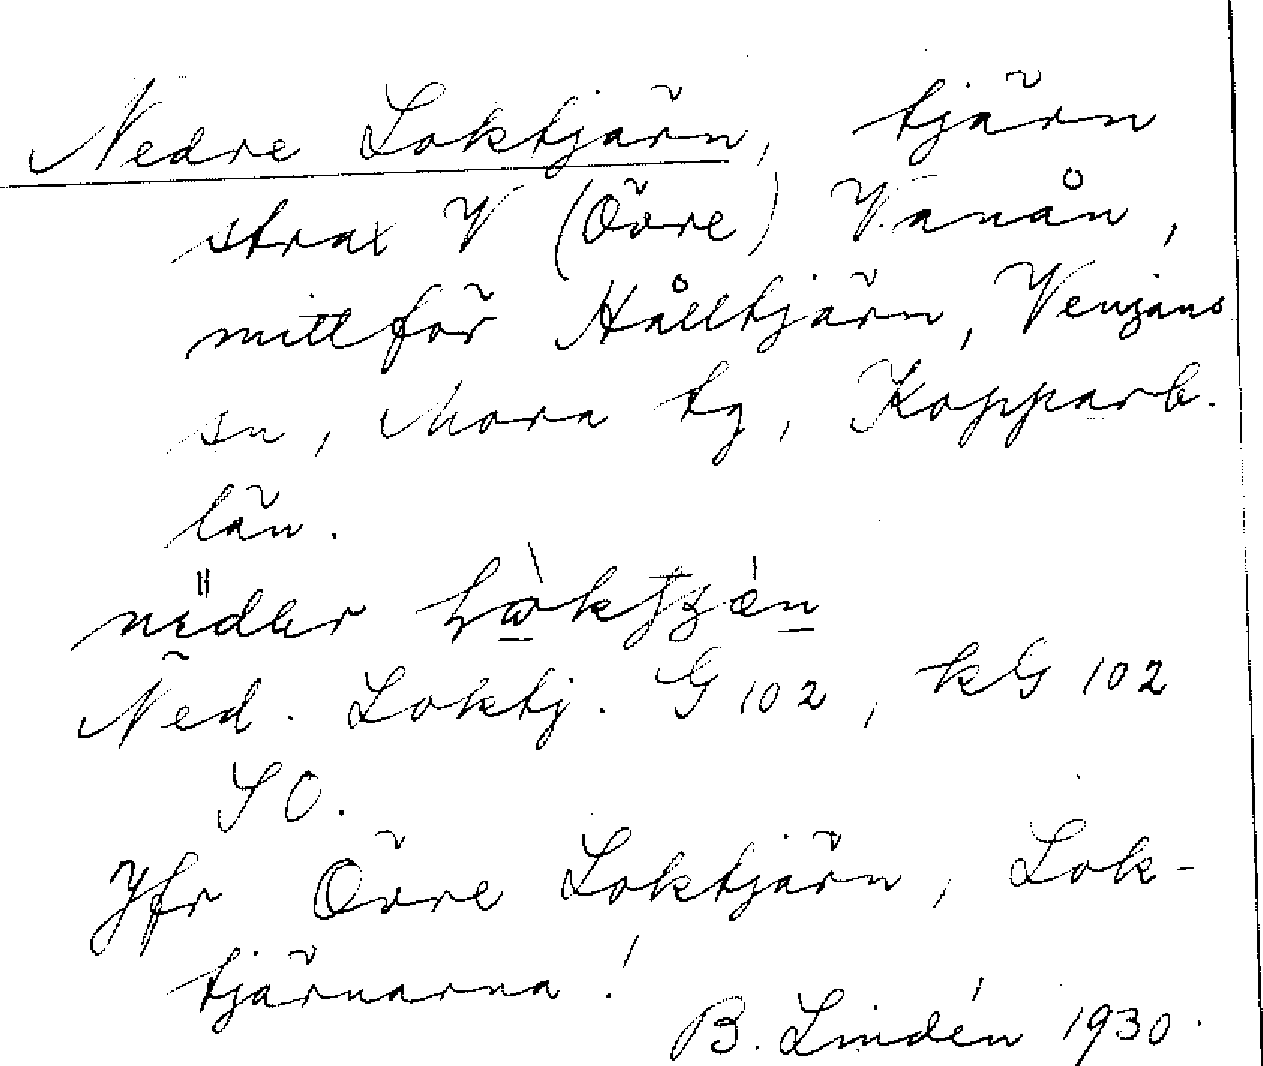 Nedre Loktjärn, tjärn
strax V (Övre) Vanån,
mitt för Hålltjärn, Venjans
sn, Mora tg, Kopparb.
län.
Ned. Loktj. G 102, kG 102
SO.
Jfr Övre Loktjärn, Lok-
tjärnarna!
B. Lindén 1930.